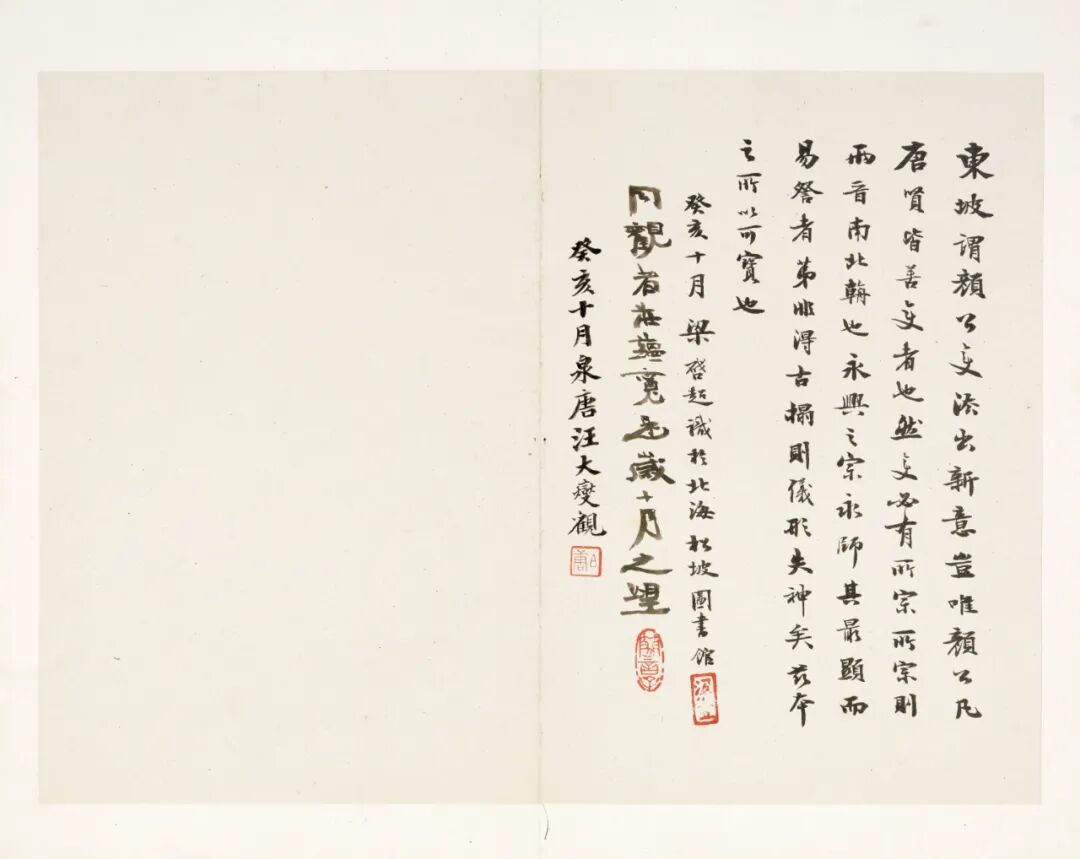 東坡謂顏公變法出新意豈唯顏公凡
唐賢皆善變者也然變必有所宗所宗則
兩晉南北輈也永興之宗永師其最顯而
易詧者第非得古搨則儀形失神矣茲本
之所以可寶也
癸亥十月梁啓超識於北海松坡圖書館
同觀者莊蘊寬是歲十月之望
癸亥十月泉唐汪大燮觀